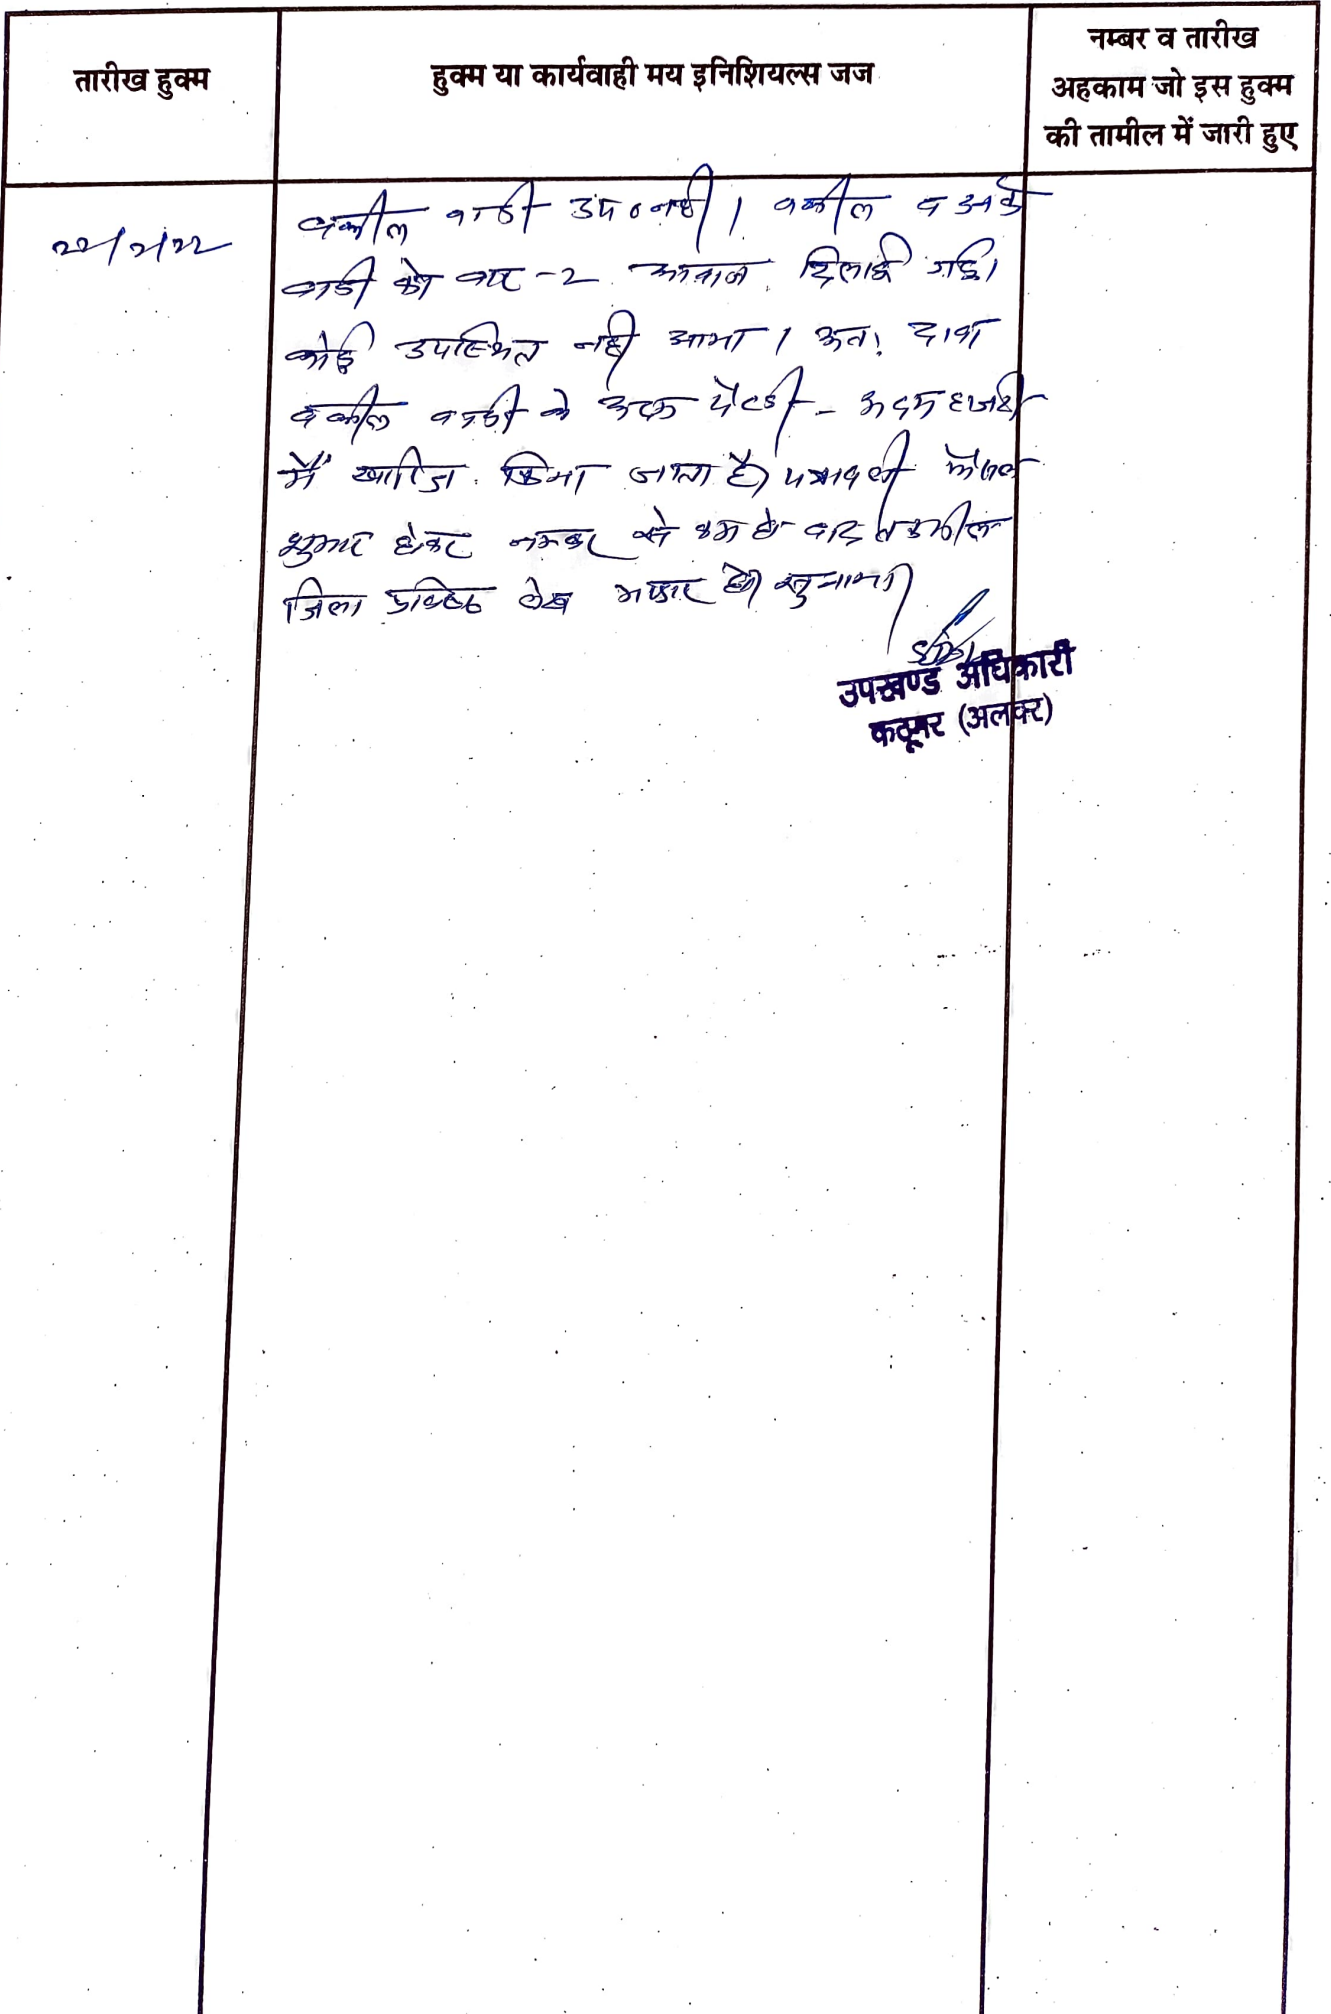 तारीख हुक्म
हुक्म या कार्यवाही मय इनिशियल्स जज
नम्बर व तारीख
अहकाम जो इस हुक्म
की तामील में जारी हुए
वकील वादी उप० नहीं। वकील व
वादी को बार-2 आवाज दिलाई गई।
कोई उपस्थित नहीं आया। अतः दावा
वकील वादी के अदम पैरवी - अदम हाजरी
में खारिज किया जाता है। पत्रावली फैसल
शुमार होकर नम्बर से कम हो बाद तकमील
जिला लेख हो। सुनाया।
उपखण्ड अधिकारी
कठूमर (अलवर)